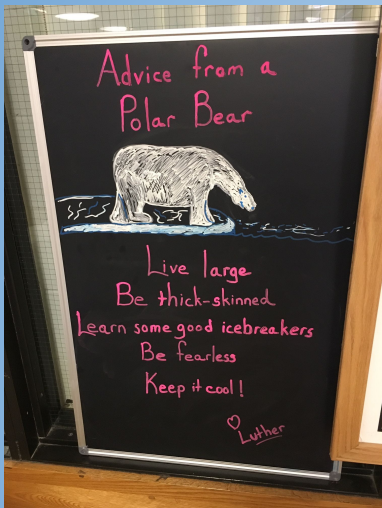 Advice from a
Polar Bear
Live large
Be thick-skinned
Learn some good icebreakers
Be fearless
Keep it cool!
Luther